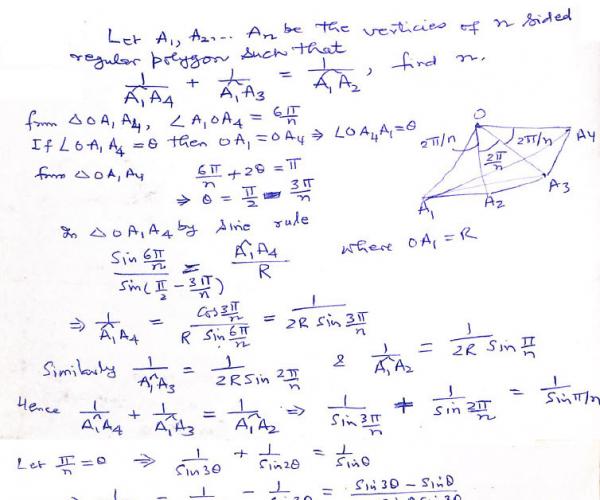 Let A₁, A₂,... Aₙ be the verticies of n sided
regular polygon such that
1/A₁A₄ + 1/A₁A₃ = 1/A₁A₂, find n.
from △OA₁A₄, ∠A₁OA₄ = 6π/n
If ∠OA₁A₄ = θ then OA₁ = OA₄ ⇒ ∠OA₄A₁ = θ
from △OA₁A₄ 6π/n + 2θ = π
⇒ θ = π/2 - 3π/n
In △OA₁A₄ by sine rule
where OA₁ = R
Sin 6π/n / Sin(π/2 - 3π/n) = A₁A₄/R
⇒ 1/A₁A₄ = Cos 3π/n / R Sin 6π/n = 1/2R Sin 3π/n
Similarly 1/A₁A₃ = 1/2R Sin 2π/n & 1/A₁A₂ = 1/2R Sin π/n
Hence 1/A₁A₄ + 1/A₁A₃ = 1/A₁A₂ ⇒ 1/Sin 3π/n + 1/Sin 2π/n = 1/Sin π/n
Let π/n = θ ⇒ 1/Sin3θ + 1/Sin2θ = 1/Sinθ
O
2π/n
2π/n
2π/n
A₄
A₃
A₂
A₁